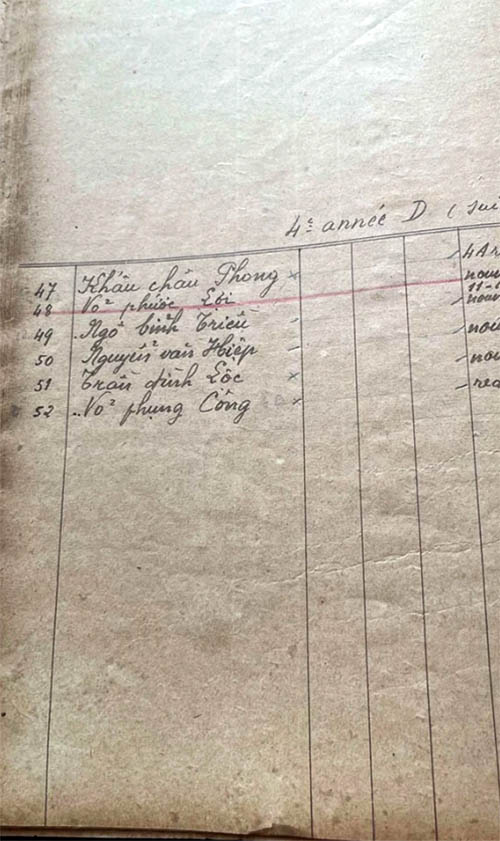 4e année D ( sui
47 Khâu châu Phong × 4A r
48 Võ phước Lợi nou
11-1
49 Ngô bình Triều - nouv
50 Nguyễn văn Hiệp - nou
51 Trần đình Lộc × nou
52 Võ phụng Công × rea